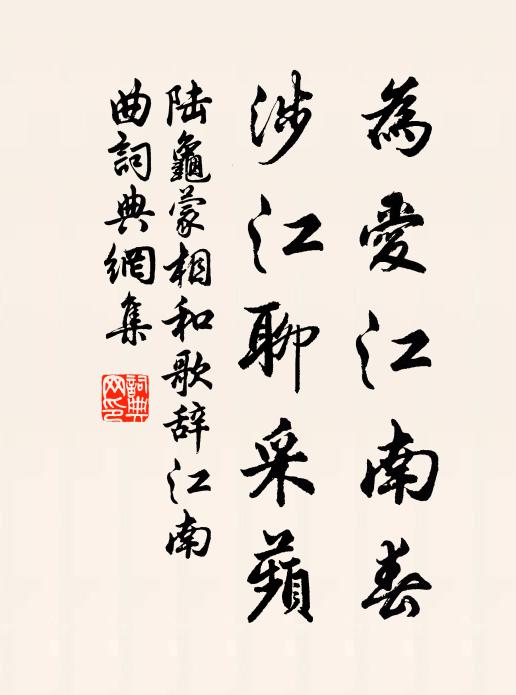 為愛江南春
涉江聊采蘋
陆龜蒙相和歌辞江南
曲詞典網集
詞典
网印